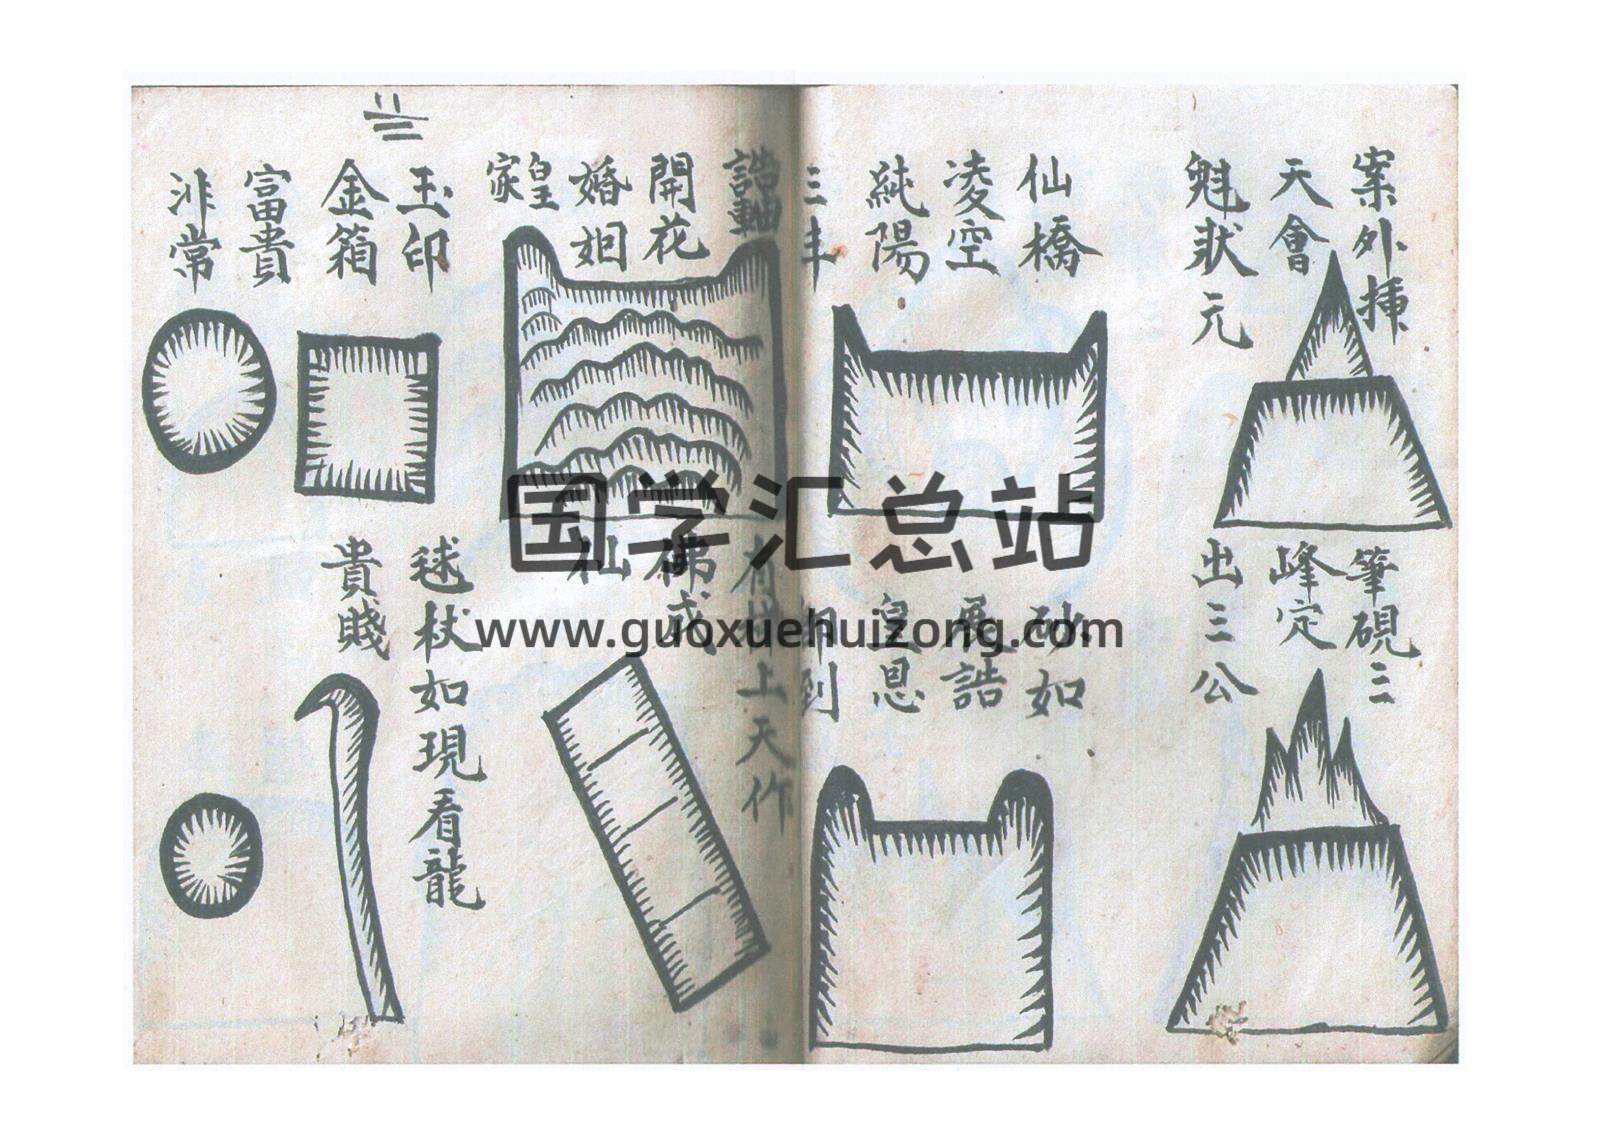 案外挿
天會
魁狀元
筆硯三
峰定
出三公
仙橋
凌空
純陽
三丰
砂如
展誥
皇恩
即到
誥軸
開花
婚姻
皇
家
上天作
佛或
仙
玉印
金箱
富貴
非常
毬杖如現看龍
貴賤
国学汇总站
www.guoxuehuizong.com